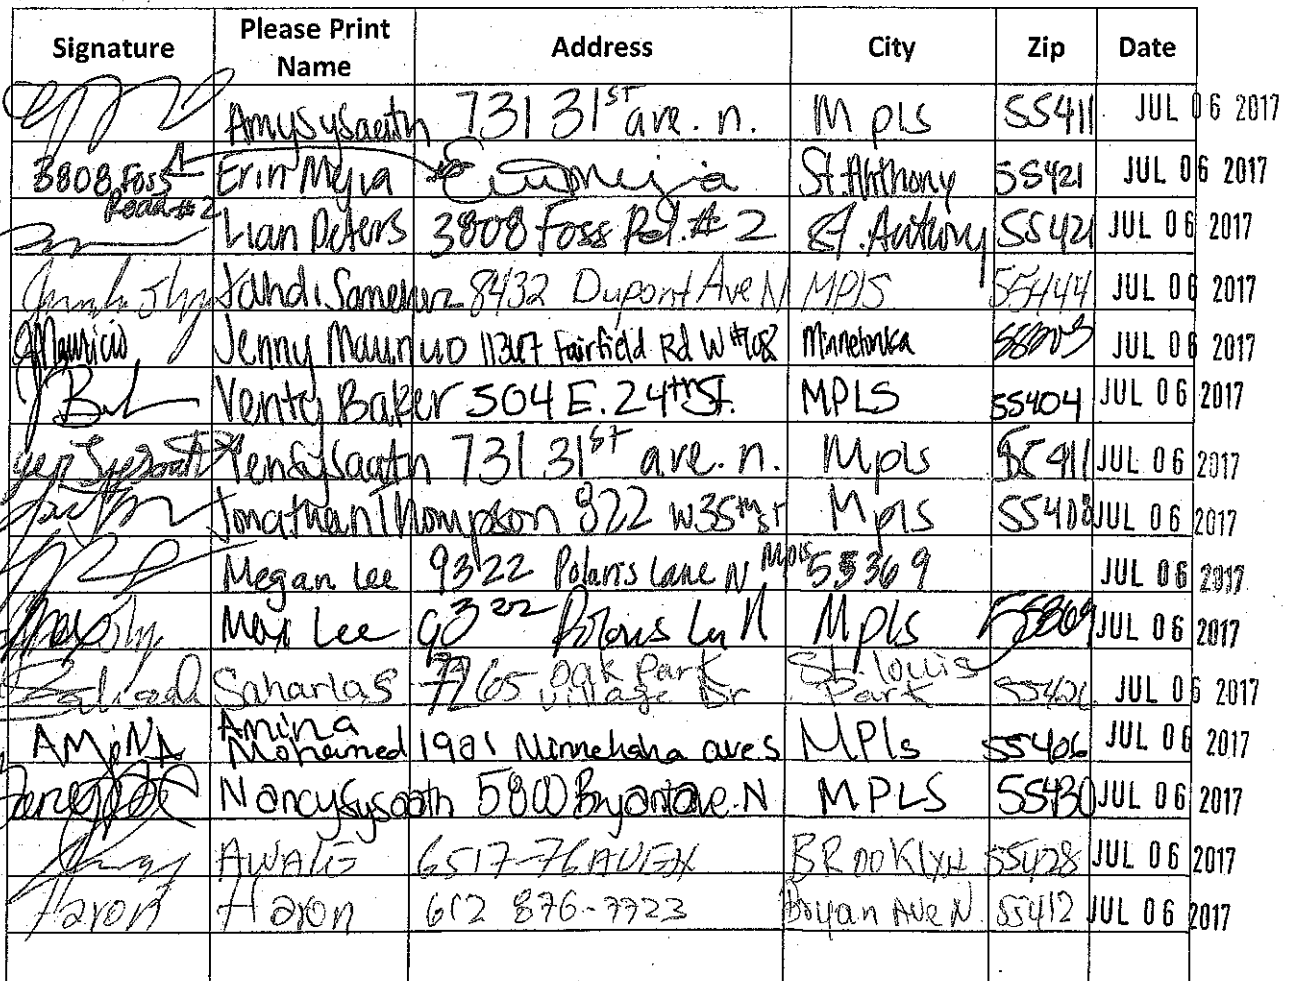 Signature Please Print Name Address City Zip Date
Amy Sysaath 731 31st ave. n. Mpls 55411 JUL 06 2017
3808 Foss Road #2 Erin Mejia Erin Mejia St. Anthony 55421 JUL 06 2017
Lian Peters 3808 Foss Rd. #2 St. Anthony 55421 JUL 06 2017
8432 Dupont Ave N MPLS 55444 JUL 06 2017
JMauricio Jenny Mauricio Fairfield Rd W #108 Minnetonka JUL 06 2017
Baker 504 E. 24th St. MPLS 55404 JUL 06 2017
Yen Sysaath 731 31st ave. n. Mpls 55411 JUL 06 2017
Jonathan Thompson 822 W 35th st Mpls 55408 JUL 06 2017
Megan Lee 9322 Polaris Lane N Mpls 55369 JUL 06 2017
Max Lee 9322 Polaris Ln N Mpls 55369 JUL 06 2017
Oak Park Village Dr St. Louis Park JUL 06 2017
AMiNA Amina Mohamed 1901 Minnehaha ave s MPls 55406 JUL 06 2017
Nancy Sysaath 5800 Bryant ave. N MPLS 55430 JUL 06 2017
6517-76 BROOKLYN 55428 JUL 06 2017
Haron Haron 612 876-7723 Bryan Ave N 55412 JUL 06 2017